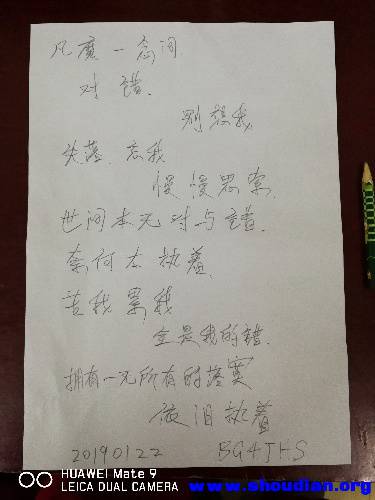 凡魔一念间
对错.
别想我
失落.忘我
慢慢思索.
世间本无对与错.
奈何太执着.
苦我累我
全是我的错.
拥有一无所有的落寞
依旧执着
20190122 BG4THS
HUAWEI Mate 9
LEICA DUAL CAMERA
www.shoudian.org